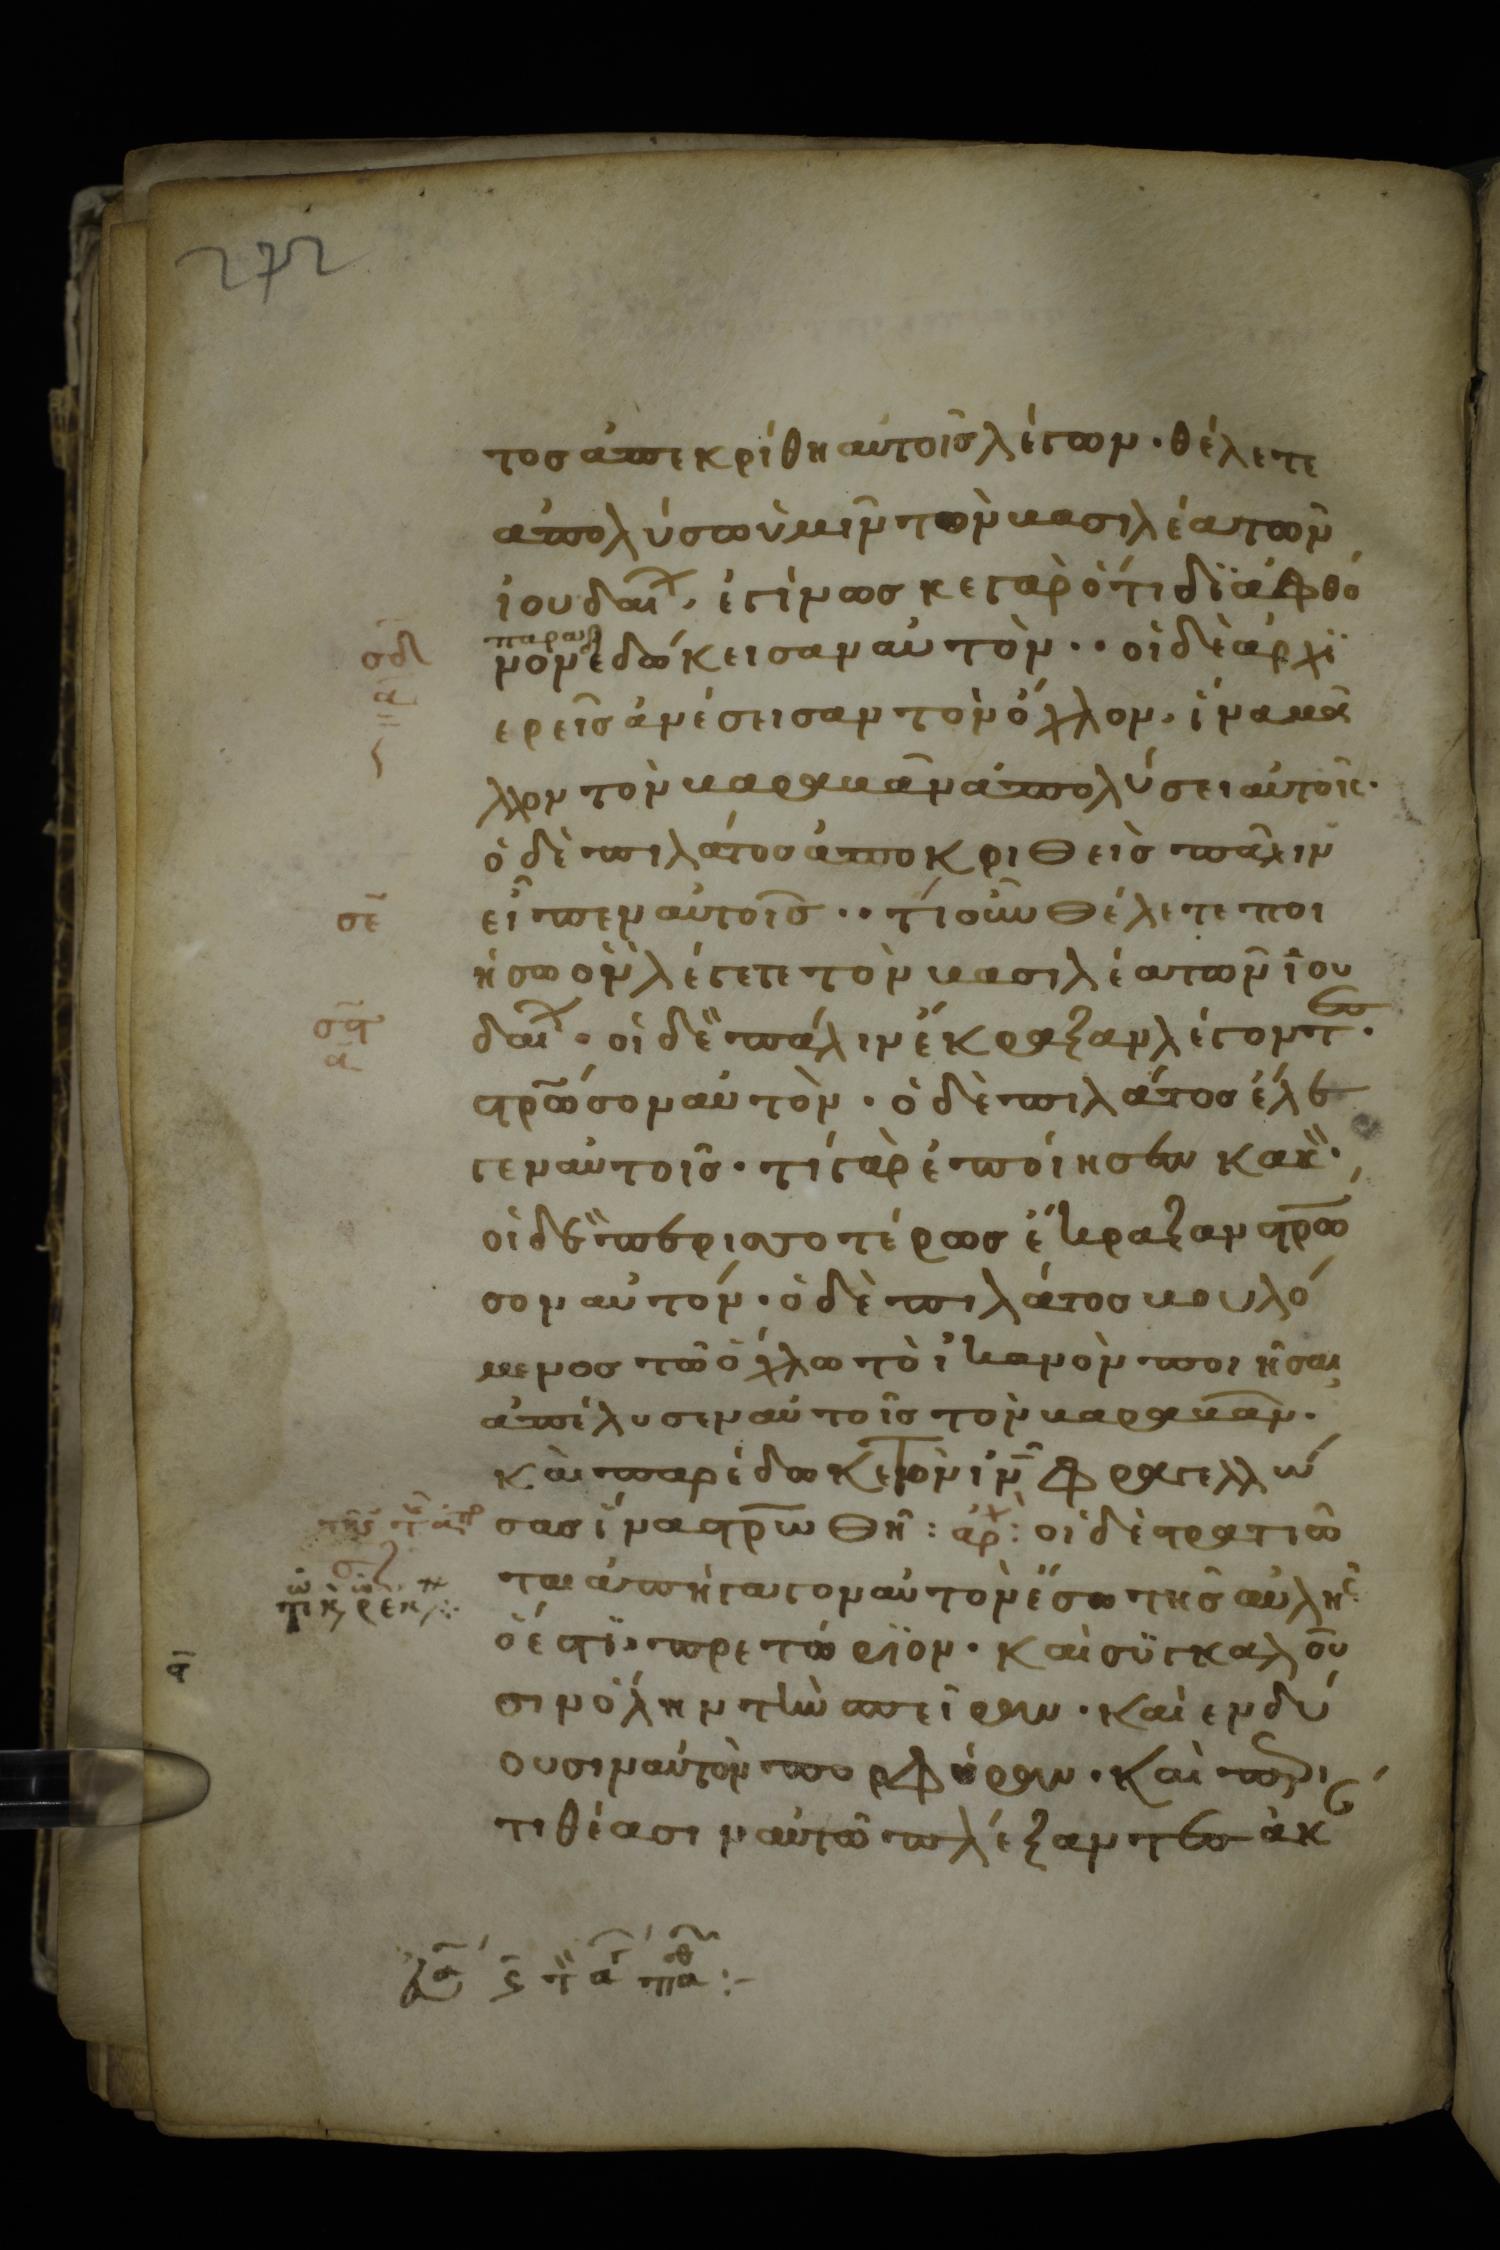 272
τος ἀπεκρίθη αὐτοῖς λέγων · θέλετε
ἀπολύσω ὑμῖν τὸν βασιλέα τῶν
ἰουδαί · ἐγίνωσκε γὰρ ὅτι διὰ φθό
σλδ
παρα
νον εδώκεισαν αὐτὸν · · οἱ δὲ ἀρχϊ
ερεῖς ἀνέσεισαν τὸν ὄχλον, ἵνα μᾶ
λλον τὸν βαραββᾶν ἀπολύσει αὐτοῖς ·
ὁ δὲ πιλάτος ἀποκριθεὶς πάλιν
σε
εἶπεν αὐτοῖς · · τί οὖν θέλετε ποι
ήσω ὃν λέγετε τὸν βασιλέα τῶν ἰου
σϛ
α
δαί · οἱ δὲ πάλιν ἔκραξαν λέγοντες ·
στρωσον αὐτὸν · ὁ δὲ πιλάτος ἔλε
γεν αὐτοῖς · τί γὰρ ἐποίησεν κακ ·
οἱ δὲ περισσοτέρως ἔκραξαν στρω
σον αὐτόν · ὁ δὲ πιλάτος βουλό
μενος τῶ ὄχλω τὸ ἱκανὸν ποιῆσαι
ἀπέλυσεν αὐτοῖς τὸν βαραββᾶν ·
καὶ παρέδωκε τὸν ἰν φραγελλώ
σας ἵνα στρωθῆ : αρχ : οἱ δὲ στρατιῶ
ται ἀπήγαγον αὐτὸν ἔσω τῆς αὐλῆς
ὅ ἐστϊ · πρετώριον · καὶ συγκαλοῦ
σιν ὅλην τὴν σπεῖραν · καὶ ενδύ
ουσιν αὐτὸν πορφύραν · καὶ περι
τιθέασιν αὐτῶ πλέξαντες ἀκ